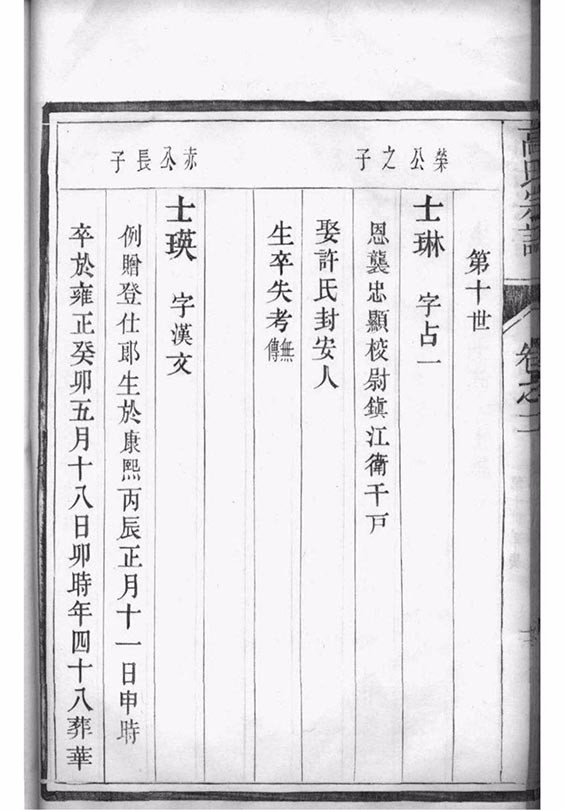 高氏宗譜
卷之二
第十世
榮公之子
士琳 字占一
恩襲忠顯校尉鎮江衛千戶
娶許氏封安人
生卒失考無傳
赤丞長子
士瑛 字漢文
例贈登仕郎生於康熙丙辰正月十一日申時
卒於雍正癸卯五月十八日卯時年四十八葬華